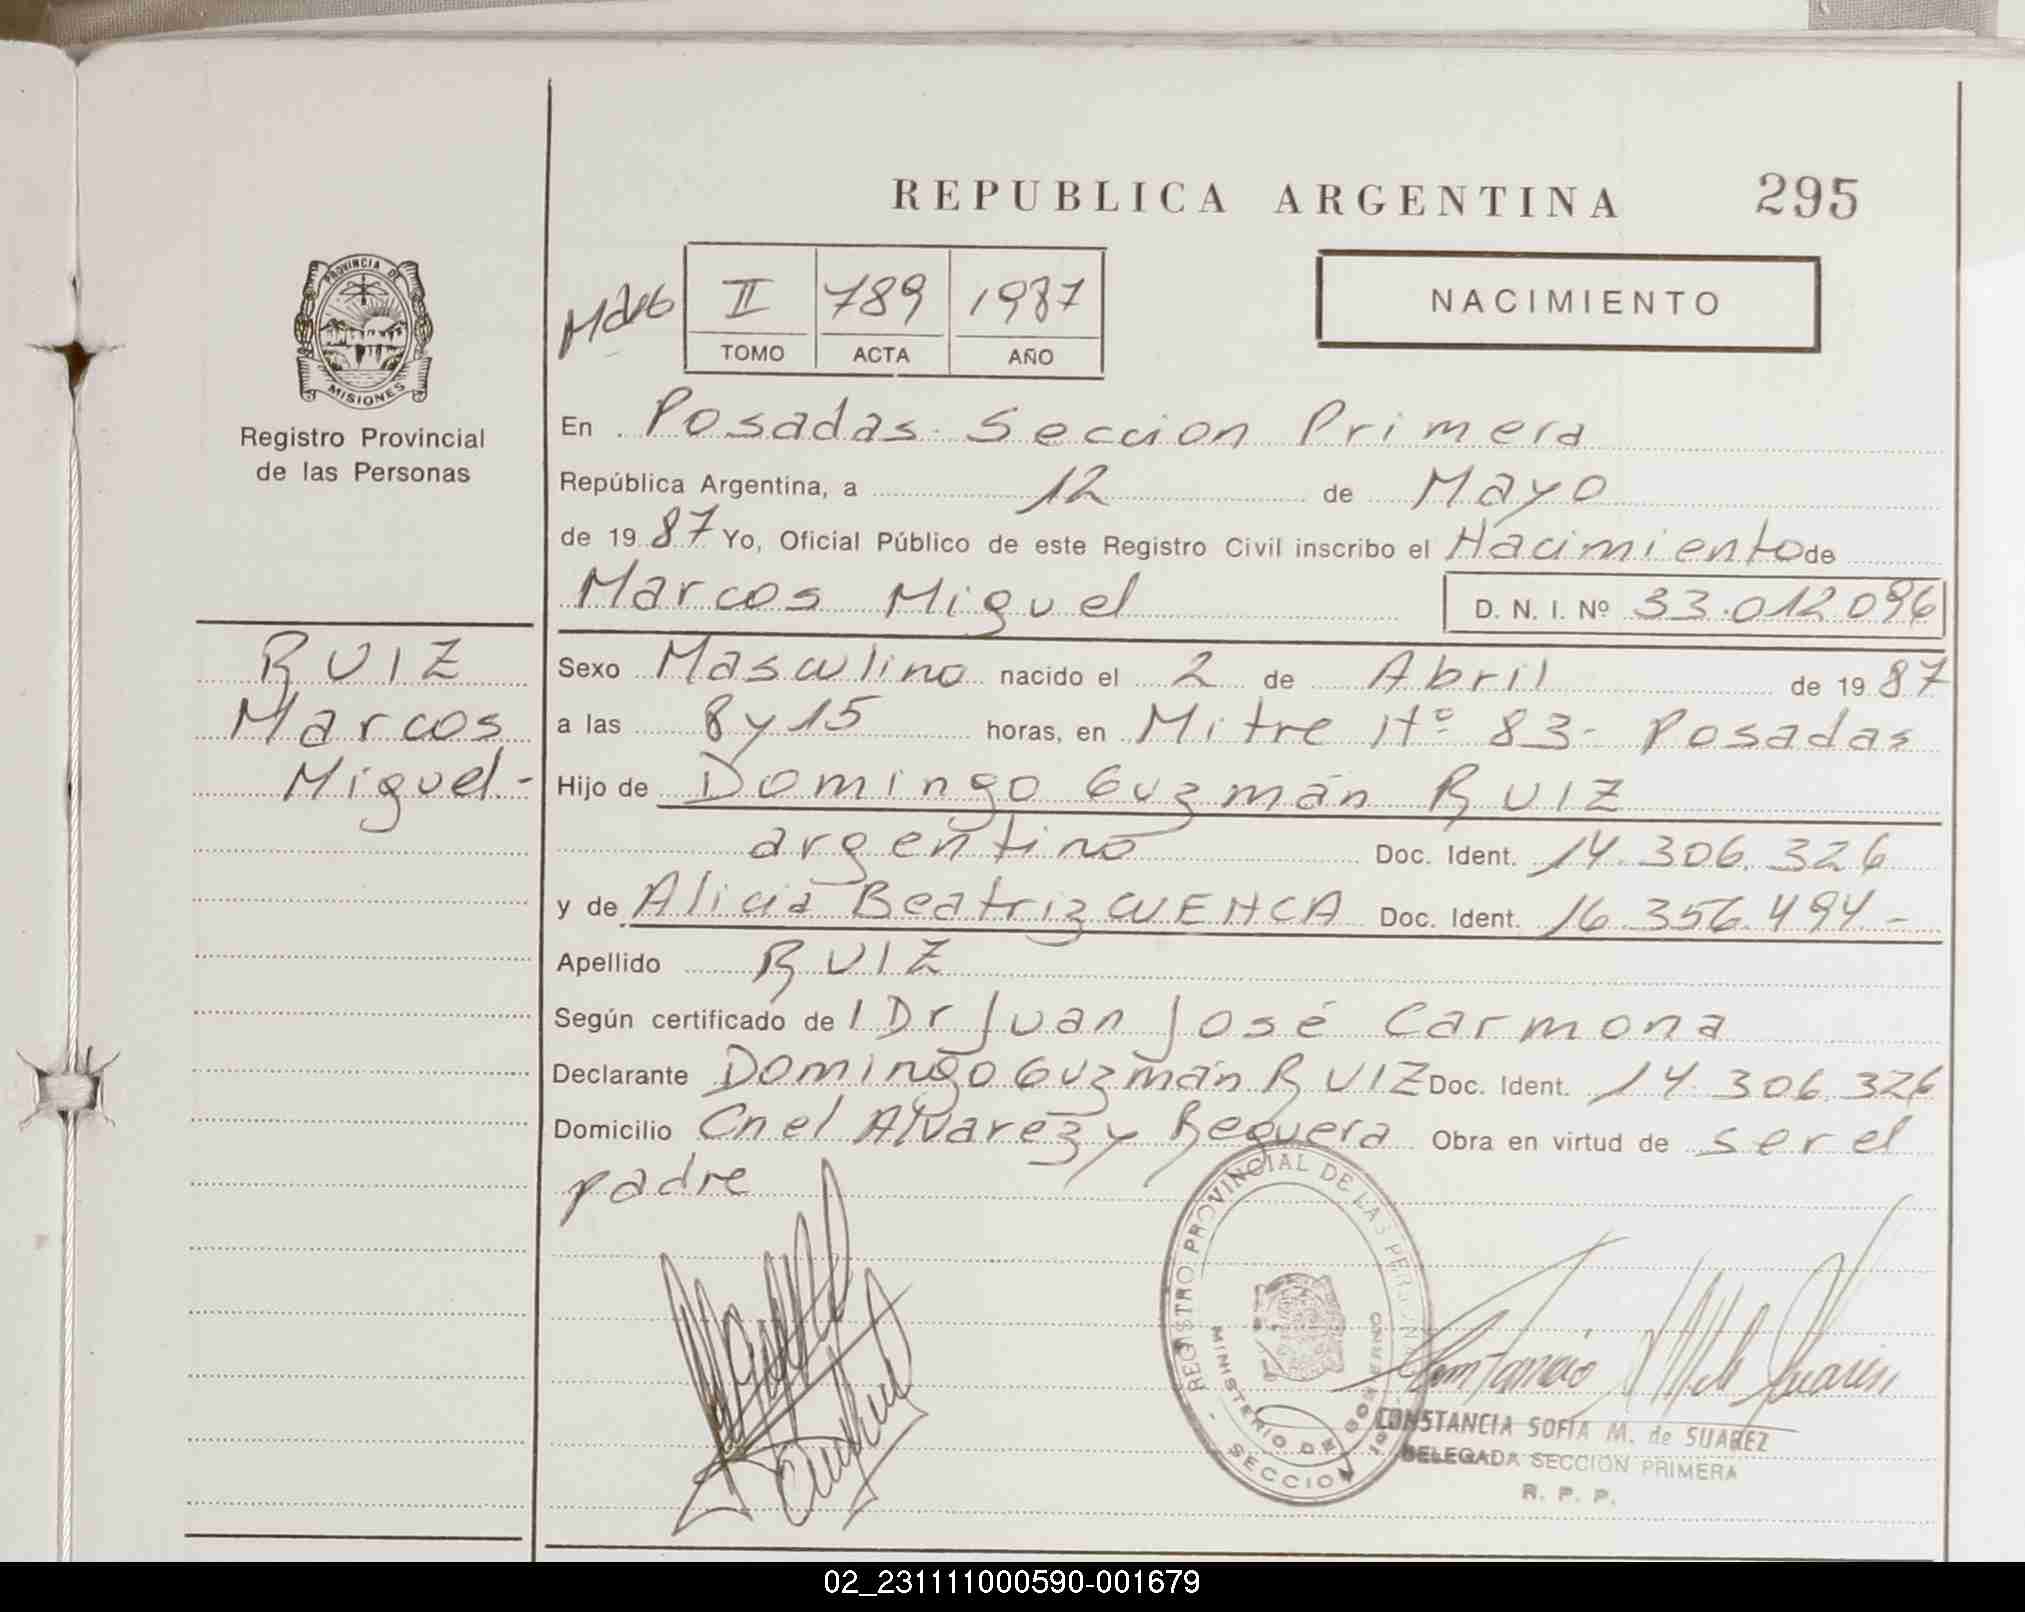 REPUBLICA ARGENTINA 295
PROVINCIA DE
MISIONES
Registro Provincial
de las Personas
II 789 1987
TOMO ACTA AÑO
NACIMIENTO
En Posadas Seccion Primera
República Argentina, a 12 de Mayo
de 1987 Yo, Oficial Público de este Registro Civil inscribo el Nacimiento de
Marcos Miguel D. N. I. Nº 33.012.096
RUIZ
Marcos
Miguel-
Sexo Masculino nacido el 2 de Abril de 1987
a las 8 y 15 horas, en Mitre Nº 83- Posadas
Hijo de Domingo Guzmán RUIZ
argentino Doc. Ident. 14.306.326
y de Alicia Beatriz CUENCA Doc. Ident. 16.356.494-
Apellido RUIZ
Según certificado del Dr Juan José Carmona
Declarante Domingo Guzmán RUIZ Doc. Ident. 14.306.326
Domicilio Cnel Alvarez y Beguera Obra en virtud de ser el
padre
REGISTRO PROVINCIAL DE LAS PERSONAS
MINISTERIO DE GOBIERNO
SECCION
CONSTANCIA SOFIA M. de SUAREZ
DELEGADA SECCION PRIMERA
R. P. P.
02_231111000590-001679